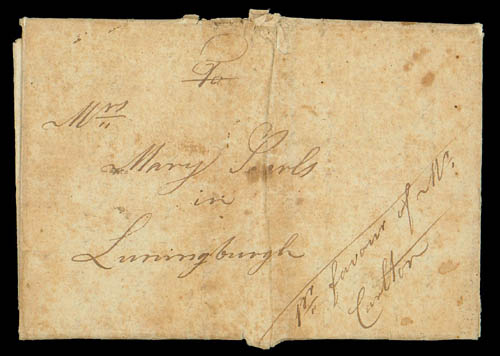 To
Mrs
Mary Searls
in
Luningburgh
pr. favour of Mr.
Carlton